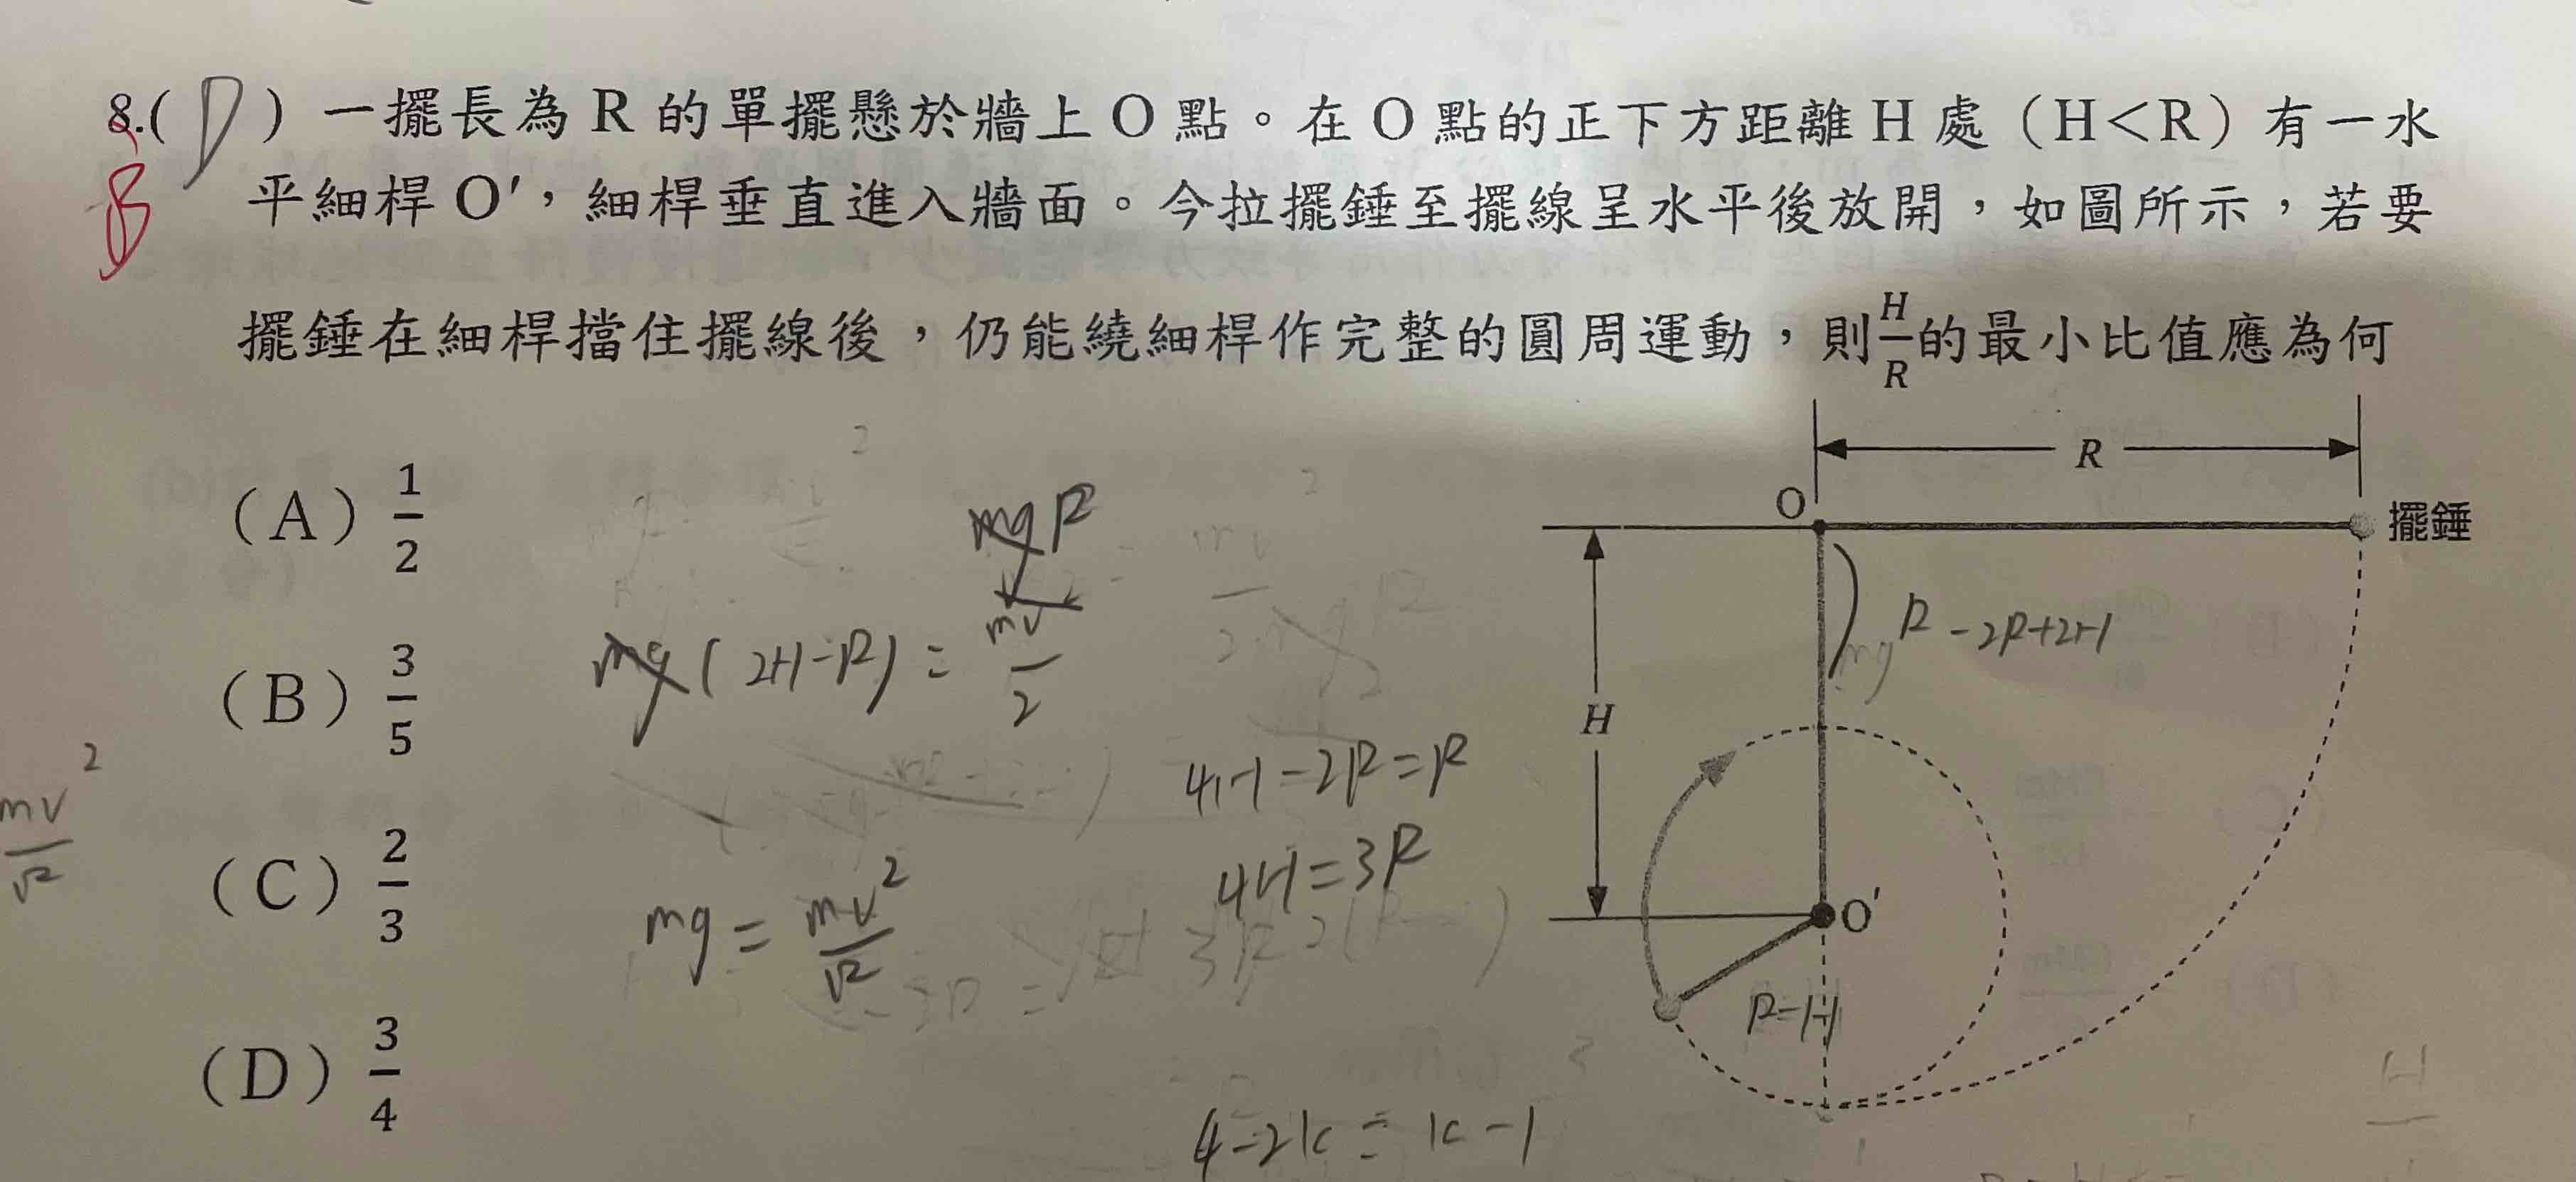 8.( D ) 一擺長為 R 的單擺懸於牆上 O 點。在 O 點的正下方距離 H 處(H<R)有一水
B
平細桿 O′,細桿垂直進入牆面。今拉擺錘至擺線呈水平後放開,如圖所示,若要
擺錘在細桿擋住擺線後,仍能繞細桿作完整的圓周運動,則 H/R 的最小比值應為何
(A) 1/2
(B) 3/5
(C) 2/3
(D) 3/4
R
O
擺錘
H
O′
mgR
mg(2H-R) = mv²/2
R-2R+2H
4H-2R=R
4H=3R
mg = mv²/R
mv²/R
R-H
4-2k = k-1
H